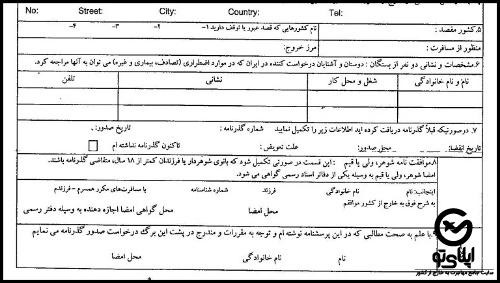 No: Street: City: Country: Tel:
۵.کشور مقصد : نام کشورهایی که قصد عبور یا توقف دارید ۱- ۲- ۳- ۴-
منظور از مسافرت : مرز خروج:
۶.مشخصات و نشانی دو نفر از بستگان : دوستان و آشنایان درخواست کننده در ایران که در موارد اضطراری (تصادف، بیماری و غیره) می توان به آنها مراجعه کرد.
نام و نام خانوادگی شغل و محل کار نشانی تلفن
۷. درصورتیکه قبلاً گذرنامه دریافت کرده اید اطلاعات زیر را تکمیل نمایید شماره گذرنامه : تاریخ صدور:
تاریخ انقضا: محل صدور: علت تعویض: تاکنون گذرنامه نداشته ام
۸.موافقت نامه شوهر، ولی یا قیم : این قسمت در صورتی تکمیل شود که بانوی شوهردار یا فرزندان کمتر از ۱۸ سال، متقاضی گذرنامه باشند.
امضا شوهر، ولی یا قیم به وسیله یکی از دفاتر اسناد رسمی گواهی می شود.
اینجانب: نام نام خانوادگی فرزند شماره شناسنامه با مسافرت‌های مکرر همسرم - فرزندم
به شرح فوق به خارج از کشور موافقم محل امضا محل گواهی امضا اجازه دهنده به وسیله دفتر رسمی
با علم به صحت مطالبی که در این پرسشنامه نوشته ام و توجه به مقررات و مندرج در پشت این برگ درخواست صدور گذرنامه می نمایم
نام نام خانوادگی محل امضا
اپلای تو
سایت جامع مهاجرت به خارج از کشور